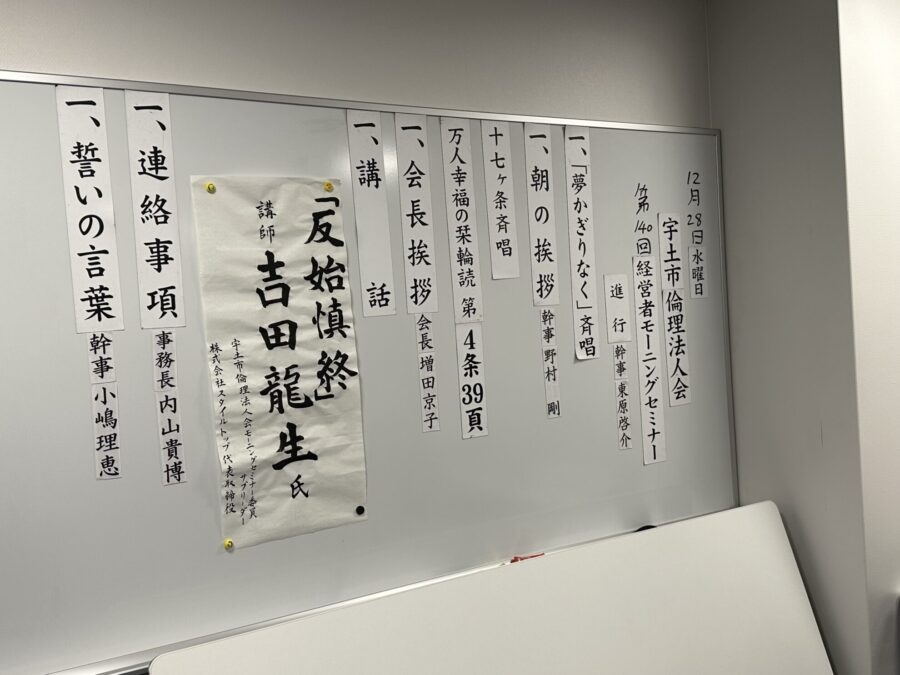 12月28日水曜日
宇土市倫理法人会
第140回経営者モーニングセミナー
進行 幹事 東原啓介
一、「夢かぎりなく」斉唱
一、朝の挨拶 幹事 野村 剛
十七ヶ条斉唱
万人幸福の栞輪読 第4条39頁
一、会長挨拶 会長 増田京子
一、講話
「反始慎終」
講師 吉田龍生氏
宇土市倫理法人会モーニングセミナー委員
サブリーダー
株式会社スタイルトップ代表取締役
一、連絡事項 事務長 内山貴博
一、誓いの言葉 幹事 小嶋理恵